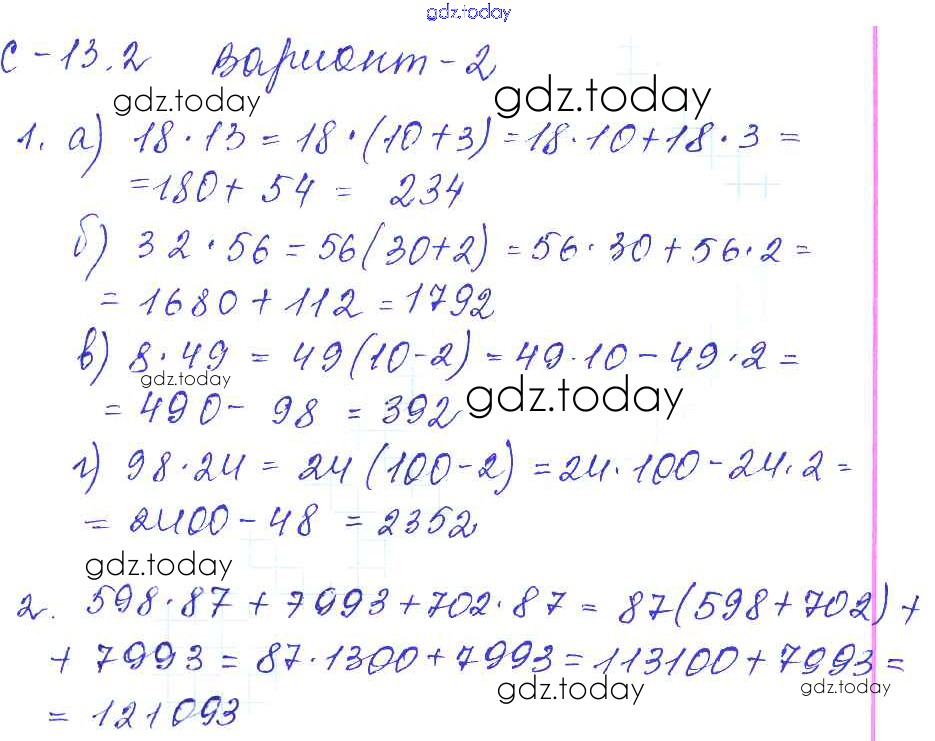 gdz.today
С-13.2 Вариант-2
gdz.today gdz.today
1. а) 18·13 = 18·(10+3) = 18·10+18·3 =
=180+ 54 = 234
б) 32·56 = 56(30+2) = 56·30+56·2 =
= 1680+112 = 1792
в) 8·49 = 49(10-2) = 49·10-49·2 =
gdz.today
= 490- 98 = 392 gdz.today
г) 98·24 = 24(100-2) = 24·100-24·2 =
= 2400-48 = 2352
gdz.today
2. 598·87+7993+702·87 = 87(598+702)+
+ 7993 = 87·1300+7993 = 113100+7993 =
gdz.today gdz.today
= 121093